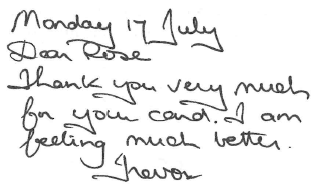 Monday 17 July
Dear Rose
Thank you very much
for your card. I am
feeling much better.
Trevor